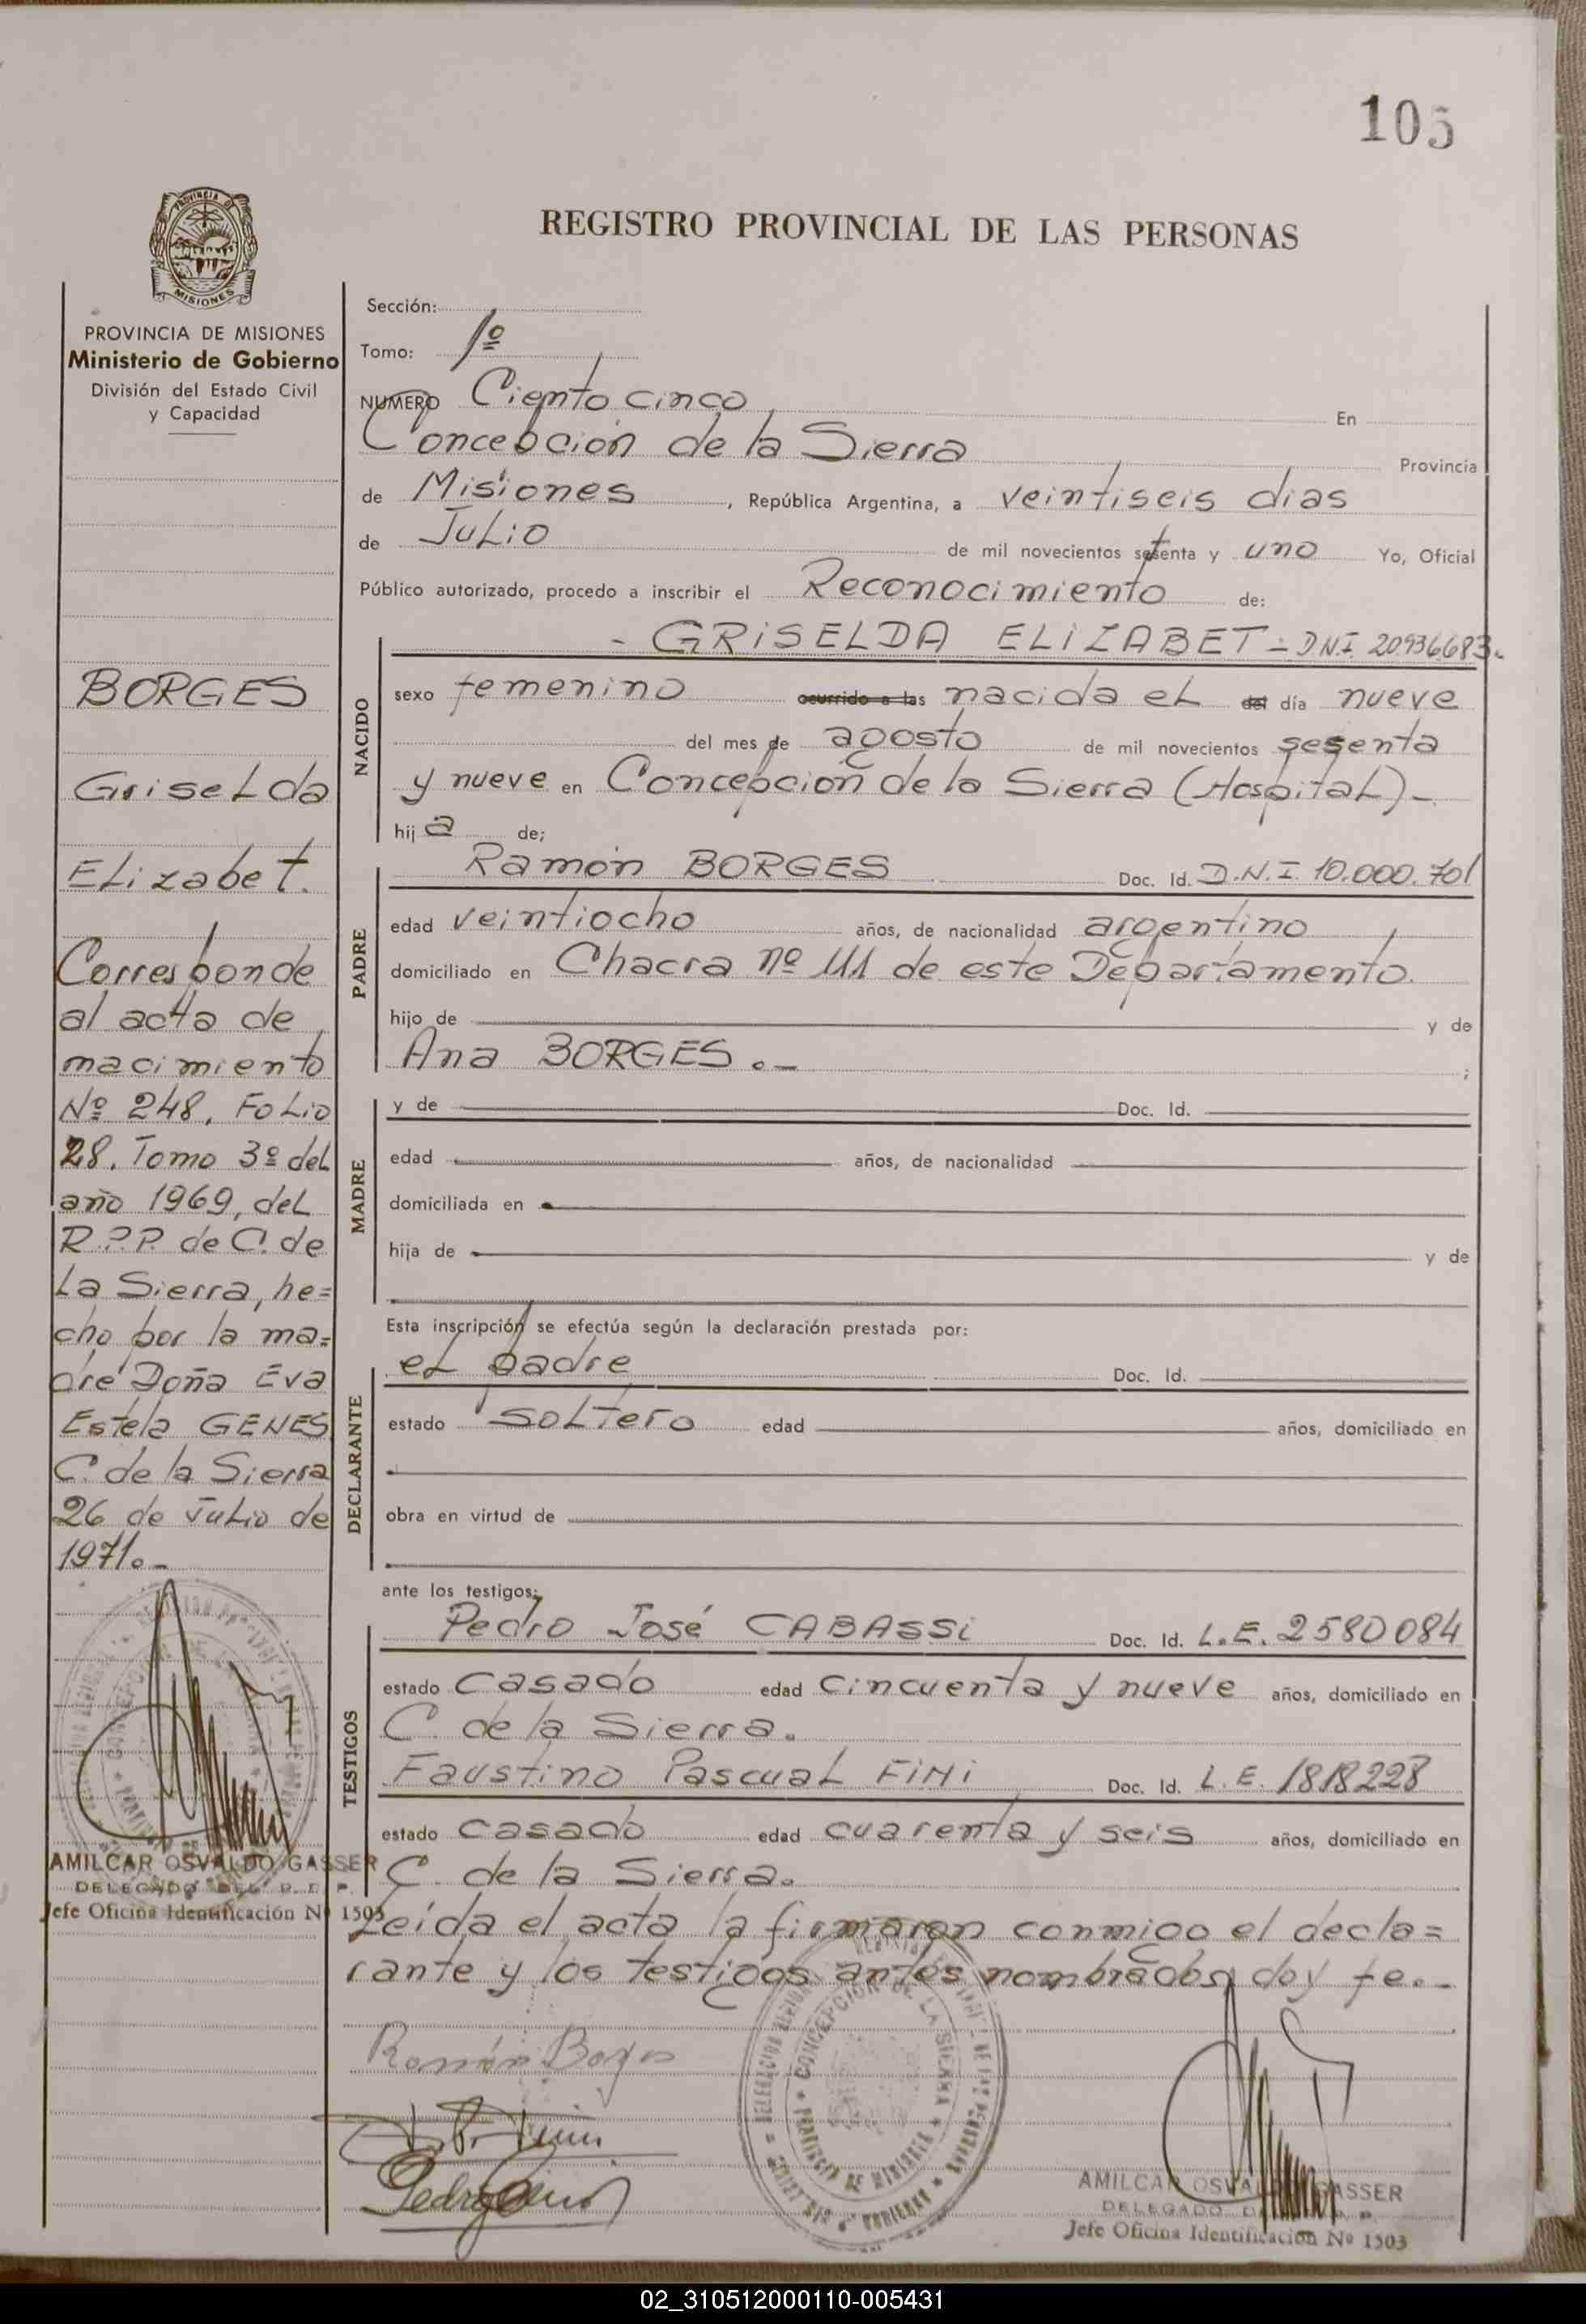 105
REGISTRO PROVINCIAL DE LAS PERSONAS
PROVINCIA DE MISIONES
Ministerio de Gobierno
División del Estado Civil
y Capacidad
BORGES
Griselda
Elizabet.
Corresponde
al acta de
nacimiento
Nº 248, Folio
28, Tomo 3º del
año 1969, del
R.P.P. de C. de
La Sierra, he=
cho por la ma=
dre Doña Eva
Estela GENES
C. de la Sierra
26 de Julio de
1971.-
AMILCAR OSVALDO GASSER
DELEGADO DEL R. P. P.
Jefe Oficina Identificación Nº 1503
Sección:
Tomo: 1º
NUMERO Ciento cinco En
Concepción de la Sierra Provincia
de Misiones, República Argentina, a veintiseis dias
de Julio de mil novecientos setenta y uno Yo, Oficial
Público autorizado, procedo a inscribir el Reconocimiento de:
NACIDO
- GRISELDA ELIZABET - D.N.I. 20.936.683.
sexo femenino ocurrido a las nacida el del día nueve
del mes de agosto de mil novecientos sesenta
y nueve en Concepción de la Sierra (Hospital)-
hija de;
PADRE
Ramón BORGES Doc. Id. D.N.I. 10.000.701
edad veintiocho años, de nacionalidad argentino
domiciliado en Chacra nº 111 de este Departamento.
hijo de y de
Ana BORGES.- ;
MADRE
y de Doc. Id.
edad años, de nacionalidad
domiciliada en
hija de y de
Esta inscripción se efectúa según la declaración prestada por:
DECLARANTE
el padre Doc. Id.
estado soltero edad años, domiciliado en
obra en virtud de
ante los testigos;
TESTIGOS
Pedro José CABASSI Doc. Id. L.E. 2580084
estado casado edad cincuenta y nueve años, domiciliado en
C. de la Sierra.
Faustino Pascual FINI Doc. Id. L.E. 1818228
estado casado edad cuarenta y seis años, domiciliado en
C. de la Sierra.
Leída el acta la firmaron conmigo el decla=
rante y los testigos antes nombrados, doy fe.-
Ramón Borges
CONCEPCION DE LA SIERRA
PROVINCIA DE MISIONES
AMILCAR OSVALDO GASSER
DELEGADO
Jefe Oficina Identificación Nº 1503
02_310512000110-005431